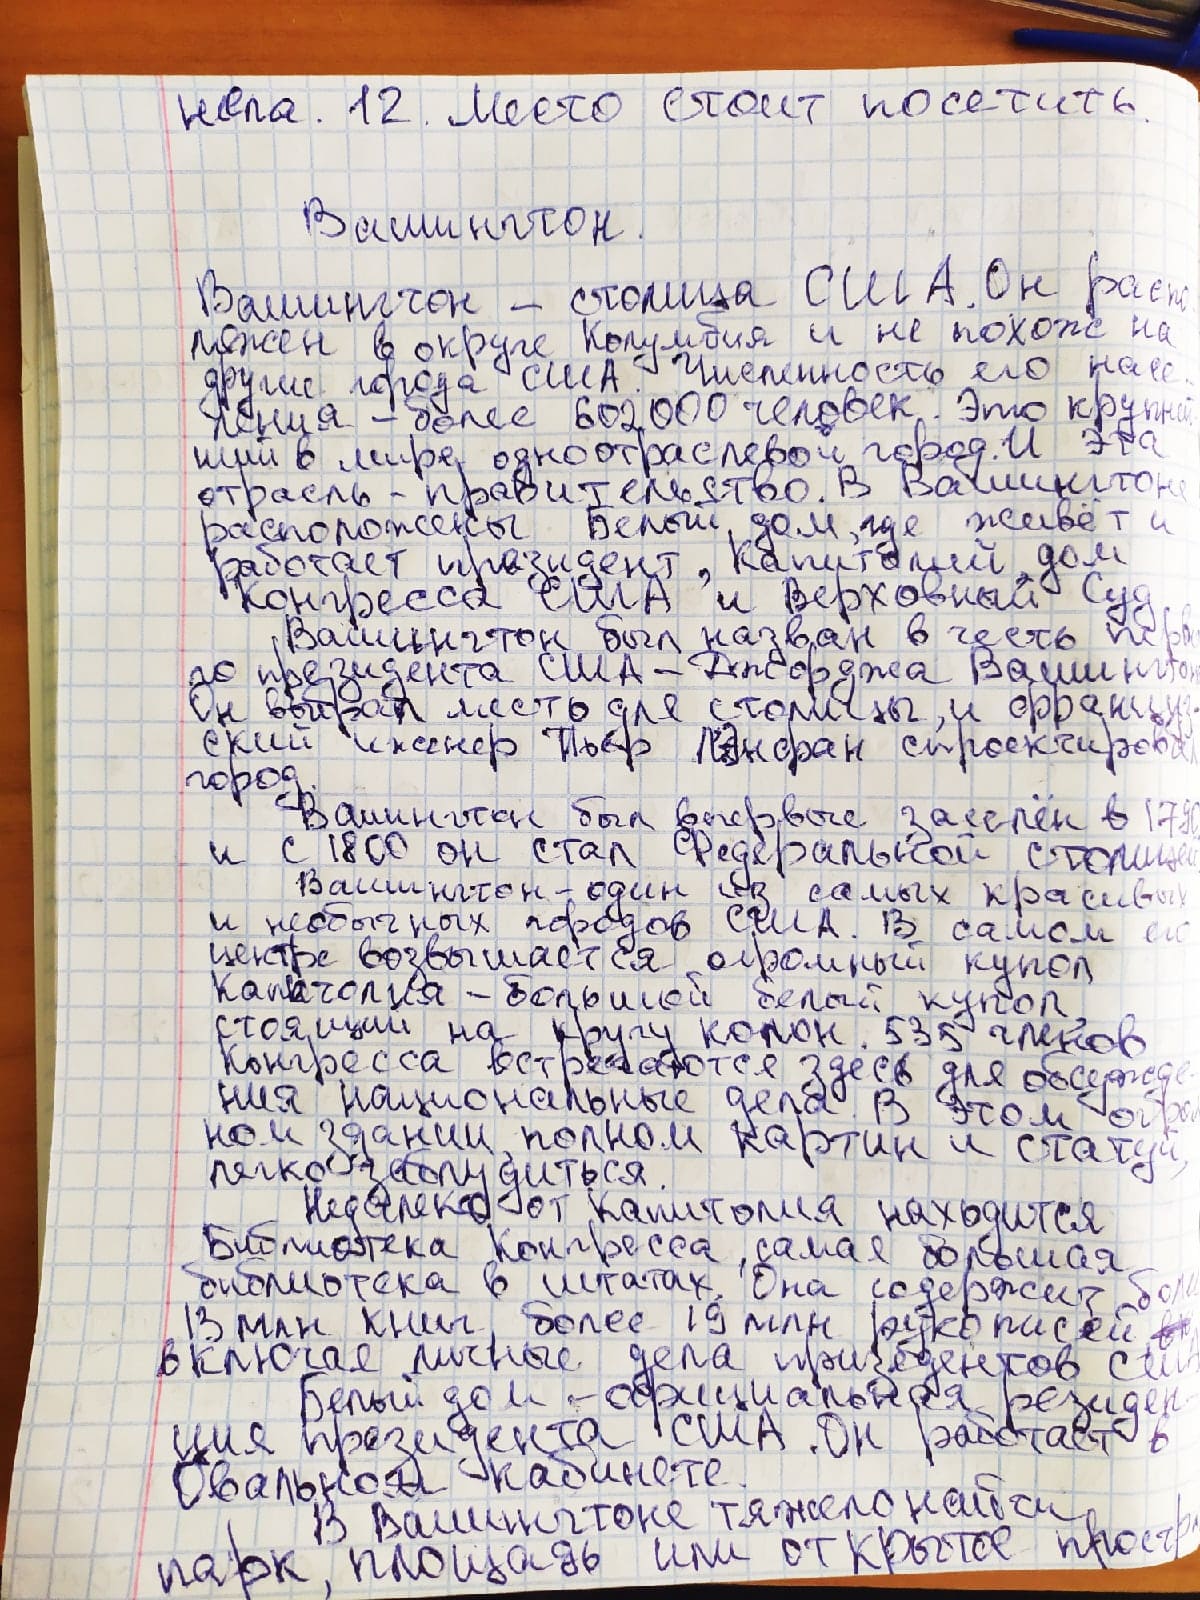 нела. 12. Место стоит посетить.
Вашингтон.
Вашингтон – столица США. Он распо
ложен в округе Колумбия и не похож на
другие города США. Численность его насе-
ления – более 602000 человек. Это крупней
ший в мире одноотраслевой город. И эта
отрасль – правительство. В Вашингтоне
расположены Белый дом, где живёт и
работает президент, Капитолий, дом
Конгресса США и Верховный Суд
Вашингтон был назван в честь перво
го президента США – Джорджа Вашингтона
Он выбрал место для столицы, и француз-
ский инженер Пьер Лэнфан спроектировал
город.
Вашингтон был впервые заселён в 1790
и с 1800 он стал Федеральной столицей
Вашингтон – один из самых красивых
и необычных городов США. В самом его
центре возвышается огромный купол
Капитолия – большой белый купол,
стоящий на кругу колон. 535 членов
Конгресса встречаются здесь для обсужде-
ния национальные дела. В этом огром
ном здании, полном картин и статуй,
легко заблудиться.
Недалеко от Капитолия находится
Библиотека Конгресса, самая большая
библиотека в штатах. Она содержит боле
13 млн книг, более 19 млн рукописей
включая личные дела призедентов США
Белый дом – официальная резиден-
ция президента США. Он работает в
Овальном кабинете.
В Вашингтоне тяжело найти
парк, площадь или открытое простр